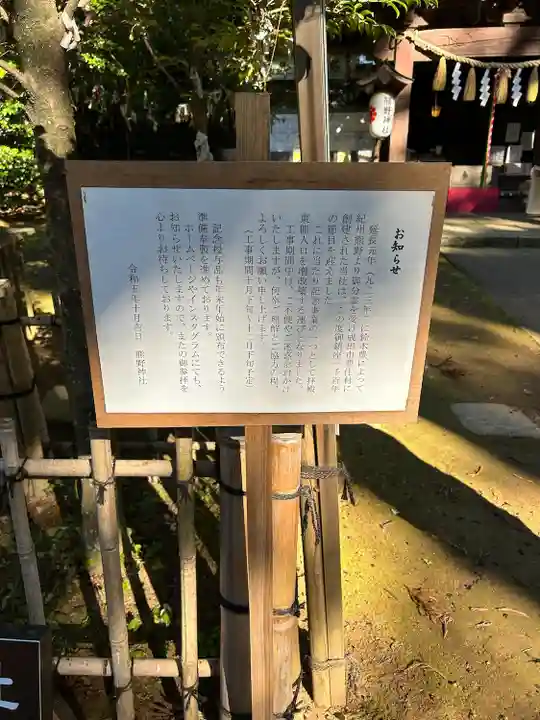 お知らせ
延長元年(九二三年)に鈴木農によって
紀州熊野より御分霊を受け成田市豊住村に
創建された当社は、この度御鎮座一一〇〇年
の節目を迎えました。
これに当たり記念事業の一つとして拝殿
東側入口を増改築する運びとなりました。
工事期間中は、ご不便やご迷惑をお掛け
いたしますが、何卒ご理解とご協力の程、
よろしくお願い申し上げます。
(工事期間十月下旬〜十二月下旬予定)
記念授与品も年末年始に頒布できるよう
準備奉製を進めております。
ホームページやインスタグラムにても、
お知らせいたしますので、またの御参拝を
心よりお待ちしております。
令和五年十月吉日 熊野神社
熊野神社